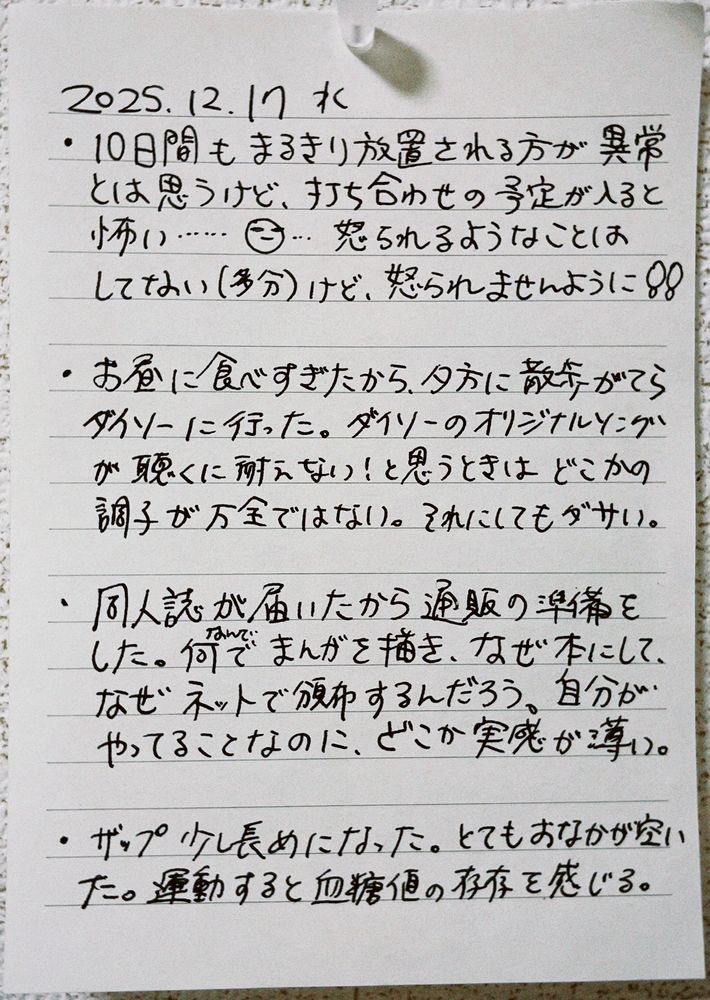 2025.12.17 水
・10日間もまるきり放置される方が異常
とは思うけど、打ち合わせの予定が入ると
怖い……😑… 怒られるようなことは
してない(多分)けど、怒られませんように!!
・お昼に食べすぎたから、夕方に散歩がてら
ダイソーに行った。ダイソーのオリジナルソング
が聴くに耐えない!と思うときはどこかの
調子が万全ではない。それにしてもダサい。
・同人誌が届いたから通販の準備を
した。何で(なんで)まんがを描き、なぜ本にして、
なぜネットで頒布するんだろう。自分が
やってることなのに、どこか実感が薄い。
・ザップ少し長めになった。とてもおなかが空い
た。運動すると血糖値の存存を感じる。